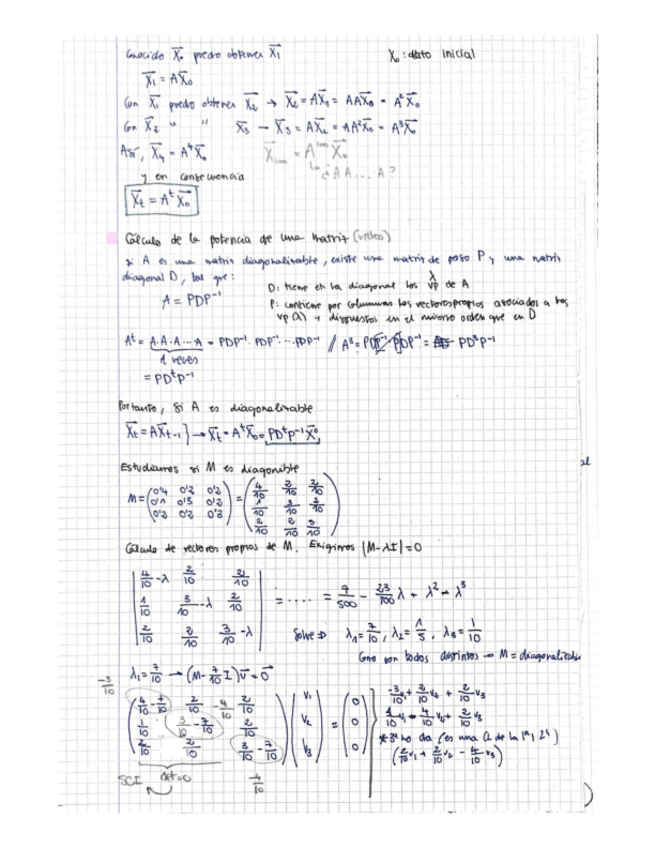 Conocido X̄₀ puedo obtener X̄₁    X₀: dato inicial
X̄₁ = AX̄₀
Con X̄₁ puedo obtener X̄₂ → X̄₂ = AX̄₁ = AAX̄₀ = A²X̄₀
Con X̄₂ " " X̄₃ → X̄₃ = AX̄₂ = AA²X̄₀ = A³X̄₀
Así, X̄₄ = A⁴X̄₀    X̄₁₀₀ = A¹⁰⁰X̄₀
↳ ¿AA...A?
y en consecuencia
X̄t = AᵗX̄₀
Cálculo de la potencia de una matriz (vídeo)
si A es una matriz diagonalizable, existe una matriz de paso P y una matriz
diagonal D, tal que:
A = PDP⁻¹
D: tiene en la diagonal los λ vp de A
P: contiene por columnas los vectores propios asociados a los
vp (λ) y dispuestos en el mismo orden que en D
Aᵗ = A·A·A···A = PDP⁻¹·PDP⁻¹···PDP⁻¹ // A³ = PDP⁻¹·PDP⁻¹ = PD³P⁻¹
veces
= PDᵗP⁻¹
Portanto, si A es diagonalizable
X̄t = AX̄t-1 } → X̄t = AᵗX̄₀ = PDᵗP⁻¹X̄₀
Estudiamos si M es diagonible
M = (0'4 0'2 0'2 / 0'1 0'3 0'2 / 0'2 0'2 0'3) = (4/10 2/10 2/10 / 1/10 3/10 2/10 / 2/10 2/10 3/10)
Cálculo de vectores propios de M. Exigimos |M-λI| = 0
|4/10-λ 2/10 2/10 / 1/10 3/10-λ 2/10 / 2/10 2/10 3/10-λ| = ..... = 7/500 - 23/100 λ + λ² - λ³
Solve ⇒ λ₁ = 7/10, λ₂ = 1/5, λ₃ = 1/10
Como son todos distintos → M = diagonalizable
λ₁ = 7/10 → (M - 7/10 I) v̄ = 0̄
-3/10
(4/10-7/10 2/10 2/10 / 1/10 3/10-7/10 2/10 / 2/10 2/10 3/10-7/10) (v₁ v₂ v₃) = (0 0 0)
-4/10
-3/10 v₁ + 2/10 v₂ + 2/10 v₃
1/10 v₁ - 4/10 v₂ + 2/10 v₃
* 3ª no da (es una CL de la 1ª y 2ª)
(2/10 v₁ + 2/10 v₂ - 4/10 v₃)
SCI det=0
-4/10